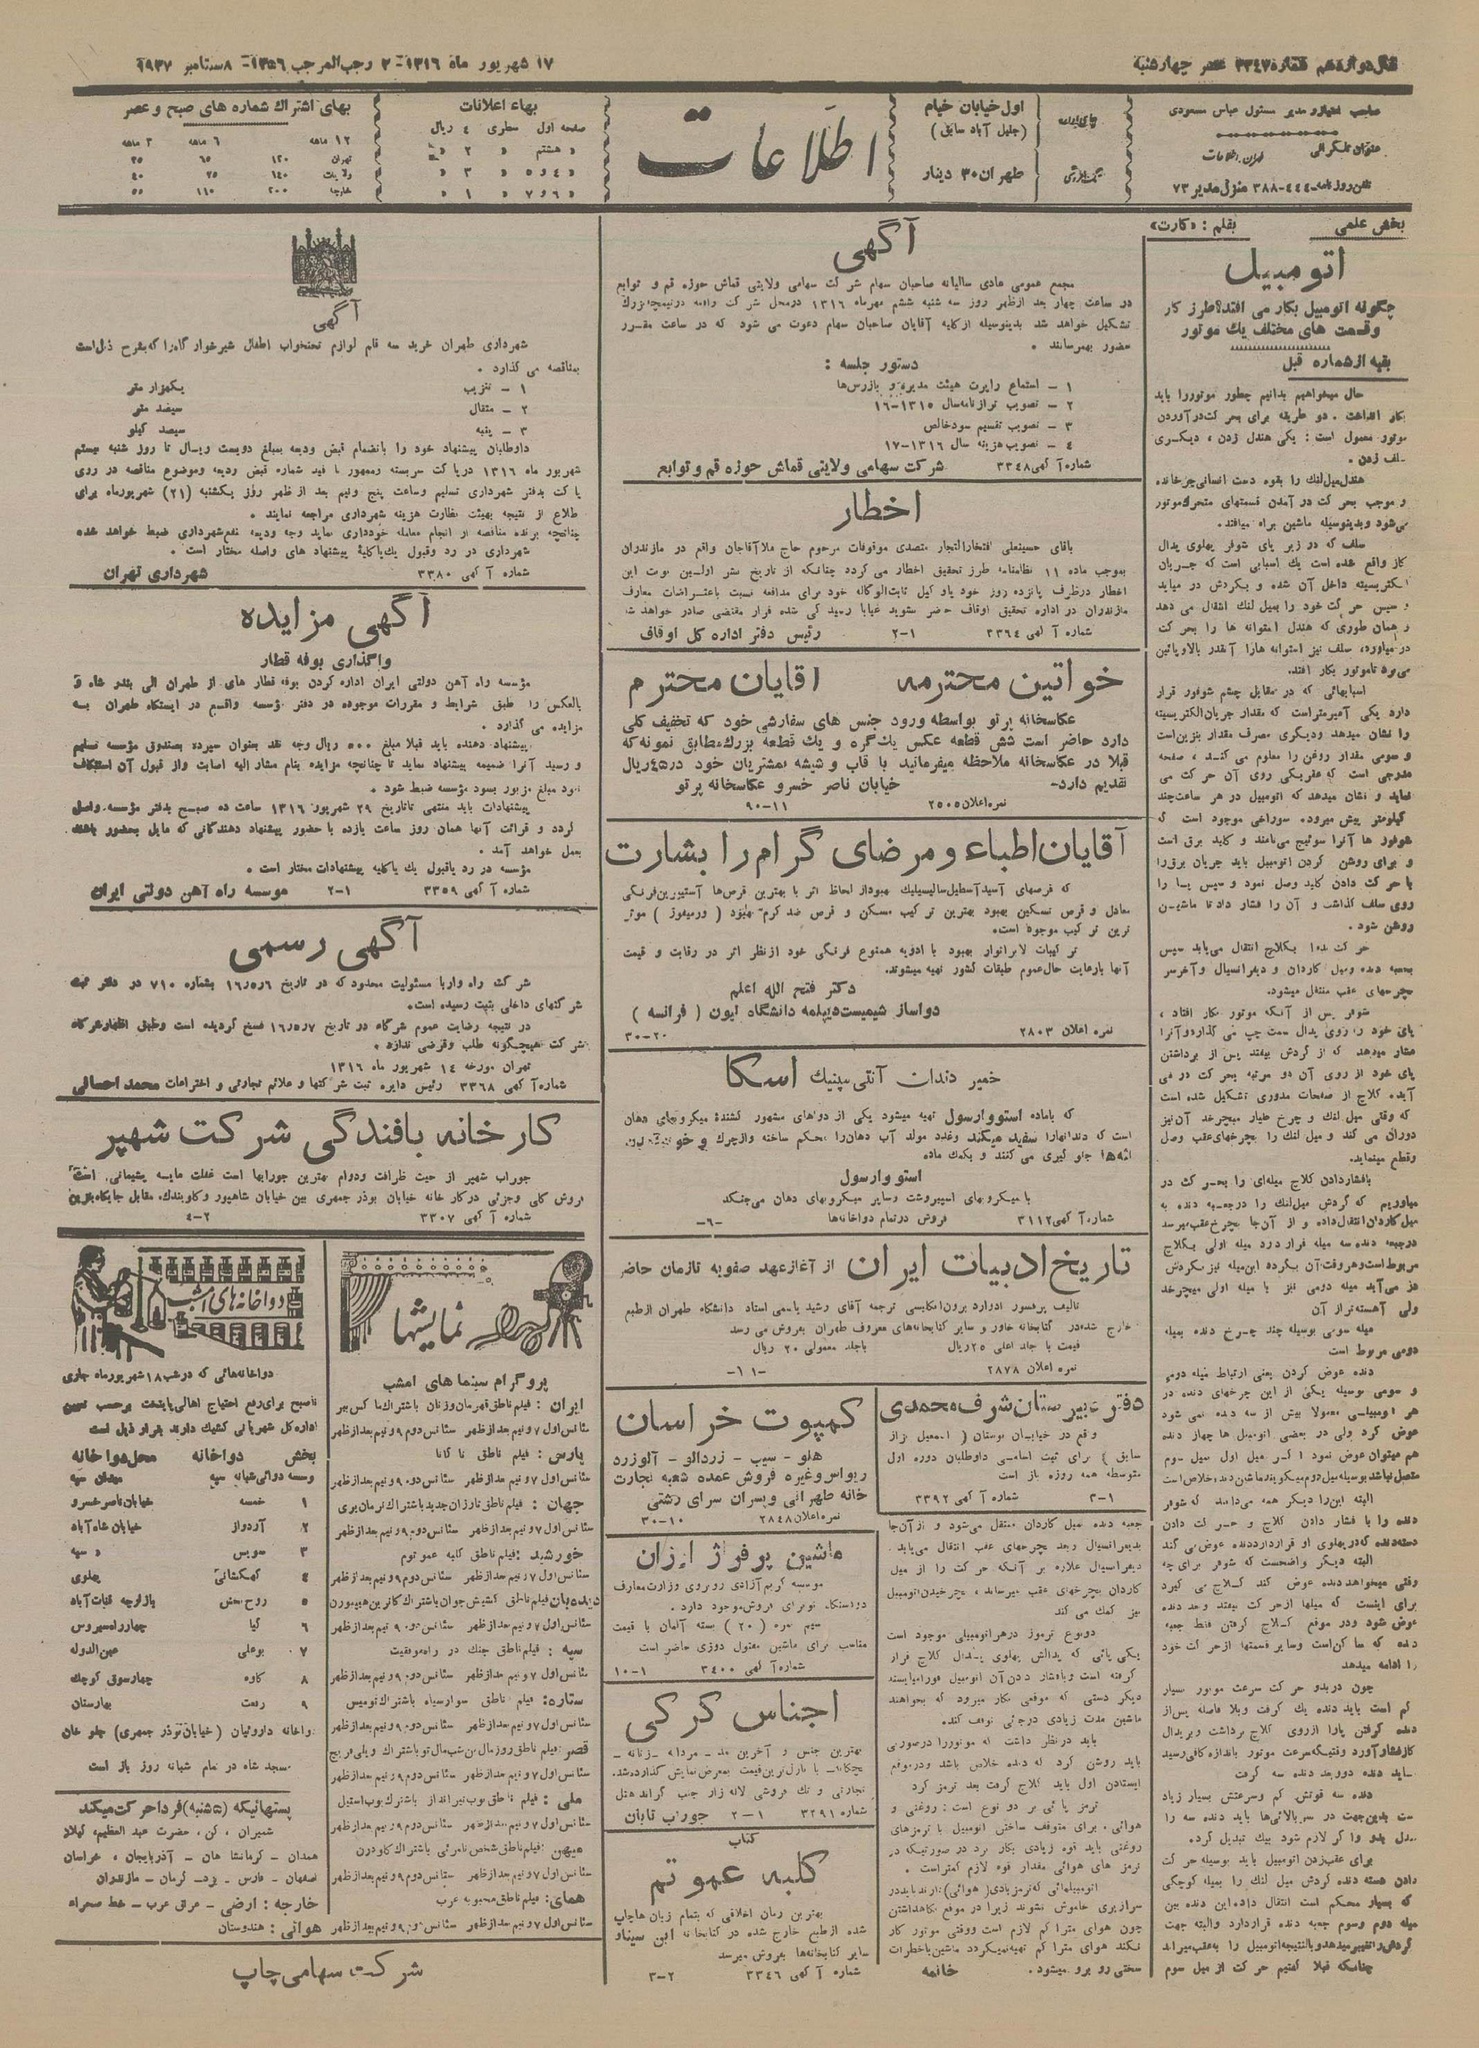 سال دوازدهم شماره ۳۳۴۷ عصر چهارشنبه
۱۷ شهریور ماه ۱۳۱۶ - ۲ رجب المرجب ۱۳۵۶ - ۸ سپتامبر ۱۹۳۷
صاحب امتیاز و مدیر مسئول عباس مسعودی
عنوان تلگرافی
طهران، اطلاعات
تلفن روزنامه ۴۴۴-۳۸۸ منزل مدیر ۷۳
اول خیابان خیام
(جلیل آباد سابق)
طهران ۳۰ دینار
اطلاعات
بهاء اعلانات
صفحه اول سطری ۴ ریال
» هشتم » ۲ »
» ۴ و ۵ » ۳ »
» ۶ و ۷ » ۱ »
بهای اشتراك شماره های صبح و عصر
۱۲ ماهه ۶ ماهه ۳ ماهه
تهران ۱۲۰ ۶۵ ۳۵
ولایات ۱۴۰ ۷۵ ۴۰
خارجه ۲۰۰ ۱۱۰ ۵۵
بخش علمی
بقلم : «کارت»
اتومبیل
چگونه اتومبیل بکار می افتد؟ طرز کار
وقسمت های مختلف یك موتور
بقیه از شماره قبل
حال میخواهیم بدانیم چطور موتور را باید
بکار انداخت . دو طریقه برای بحرکت درآوردن
موتور معمول است : یکی هندل زدن ، دیگری
سلف زدن .
هندل میل لنك را بقوه دست انسانی چرخانده
و موجب بحرکت در آمدن قسمتهای متحرك موتور
می شود و بدینوسیله ماشین براه میافتد.
سلف که در زیر پای شوفر پهلوی پدال
گاز واقع شده است یك اسبابی است که جریان
الکتریسیته داخل آن شده و بگردش در میاید
و سپس حرکت خود را بمیل لنك انتقال می دهد
و همان طوری که هندل استوانه ها را بحرکت
در میاورد، سلف نیز استوانه هارا آنقدر بالا و پائین
می برد تا موتور بکار افتد.
اسبابهائی که در مقابل چشم شوفور قرار
دارد یکی آمپرمتر است که مقدار جریان الکتریسیته
را نشان میدهد و دیگری مصرف مقدار بنزین است
و سومی مقدار روغن را معلوم می کند ، صفحه
مدرجی است که عقربکی روی آن حرکت می
نماید و نشان میدهد که اتومبیل در هر ساعت چند
کیلومتر پیش میرود، سوراخی موجود است که
شوفور ها آنرا سوئیچ می نامند و کلید برق است
و برای روشن کردن اتومبیل باید جریان برق را
با حرکت دادن کلید وصل نمود و سپس پا را
روی سلف گذاشت و آن را فشار داد تا ماشین
روشن شود .
آگهی
مجمع عمومی عادی سالیانه صاحبان سهام شرکت سهامی ولایتی قماش حوزه قم و توابع
در ساعت چهار بعد از ظهر روز سه شنبه ششم مهرماه ۱۳۱۶ در محل شرکت واقعه در تیمچه بزرگ
تشکیل خواهد شد بدینوسیله از کلیه آقایان صاحبان سهام دعوت می شود که در ساعت مقرر
حضور بهمرسانند .
دستور جلسه :
۱ - استماع راپرت هیئت مدیره و بازرس ها
۲ - تصویب ترازنامه سال ۱۳۱۵-۱۶
۳ - تصویب تقسیم سود خالص
۴ - تصویب هزینه سال ۱۳۱۶-۱۷
شماره آگهی ۳۳۴۸ شرکت سهامی ولایتی قماش حوزه قم و توابع
اخطار
باقای حسینعلی افتخارالتجار متصدی موقوفات مرحوم حاج ملا آقاجان واقع در مازندران
بموجب ماده ۱۱ نظامنامه طرز تحقیق اخطار می گردد چنانکه از تاریخ نشر اولین نوبت این
اخطار در ظرف پانزده روز خود یا وکیل ثابت الوکاله خود برای مدافعه نسبت باعتراضات معارف
مازندران در اداره تحقیق اوقاف حاضر نشوید غیابا رسیدگی شده قرار مقتضی صادر خواهد شد
شماره آگهی ۳۳۶۴ ۲-۱ رئیس دفتر اداره کل اوقاف
خواتین محترمه آقایان محترم
عکاسخانه پرتو بواسطه ورود جنس های سفارشی خود که تخفیف کلی
دارد حاضر است شش قطعه عکس یك گره و یك قطعه بزرك مطابق نمونه که
قبلا در عکاسخانه ملاحظه میفرمائید با قاب و شیشه بمشتریان خود در ۴۵ ریال
تقدیم دارد- خیابان ناصر خسرو عکاسخانه پرتو
نمره اعلان ۲۵۰۵ ۹۰-۱۱
آقایان اطباء و مرضای گرام را بشارت
که قرصهای آسید آسطیل سالیسیلیك بهبود از لحاظ اثر با بهترین قرص ها آسپیرین فرنگی
معادل و قرص تسکین بهبود بهترین ترکیب مسکن و قرص ضد کرم بهبود ( ورمیفوژ ) موثر
ترین ترکیب موجود است.
ترکیبات لابراتوار بهبود با ادویه همنوع فرنگی خود از نظر اثر در رقابت و قیمت
آنها بارعایت حال عموم طبقات کشور تهیه میشوند.
دکتر فتح الله اعلم
دواساز شیمیست دیپلمه دانشگاه لیون ( فرانسه )
نمره اعلان ۲۸۰۳ ۳۰-۲۰
خمیر دندان آنتی سپتیك اسکا
که باماده استووارسول تهیه میشود یکی از دواهای مشهور کشنده میکروبهای دهان
است که دندانهارا سفید میکند و غدد مولد آب دهان را محکم ساخته
استو وارسول
با میکروبهای اسپیروشت و سایر میکروبهای دهان می جنگد
شماره آگهی ۳۱۱۲ فروش در تمام دواخانه ها -۶-
تاریخ ادبیات ایران از آغاز عهد صفویه تا زمان حاضر
تالیف پرفسور ادوارد برون انگلیسی ترجمه آقای رشید یاسمی استاد دانشگاه طهران از طبع
خارج شده در کتابخانه خاور و سایر کتابخانه های معروف طهران بفروش می رسد
قیمت با جلد اعلی ۲۵ ریال باجلد معمولی ۲۰ ریال
نمره اعلان ۲۸۷۸ -۱۱-
دفتر دبیرستان شرف محمدی
واقع در خیابان بوستان ( اسمعیل بزاز
سابق ) برای ثبت اسامی داوطلبان دوره اول
متوسطه همه روزه باز است
۳-۱ شماره آگهی ۳۳۹۲
کمپوت خراسان
هلو - سیب - زردالو - آلوزرد
ریواس وغیره فروش عمده شعبه تجارت
خانه طهرانی و پسران سرای رشتی
نمره اعلان ۲۸۴۸ ۳۰-۱۰
ماشین پرفراژ ارزان
موسسه کریم آزادی روبروی وزارت معارف
دو دستگاه نو برای فروش موجود دارد .
سیم نمره (۲۰) بسته آلمان با قیمت
مناسب برای ماشین مفتول دوزی حاضر است
شماره آگهی ۳۴۰۰ ۱۰-۱
اجناس کرکی
بهترین جنس و آخرین مد - مردانه - زنانه -
بچگانه - با نازل ترین قیمت بمعرض نمایش گذارده شد.
تجارتی و تك فروشی لاله زار جنب گراند هتل
شماره ۳۲۹۱ ۲-۱ جوراب تابان
کتاب
کلبه عمو تم
بهترین رمان اخلاقی که بتمام زبان ها چاپ
شده از طبع خارج شده در کتابخانه ابن سینا و
سایر کتابخانه ها بفروش میرسد
شماره آگهی ۳۳۴۶ ۳-۲
آگهی
شهرداری طهران خرید سه قلم لوازم تختخواب اطفال شیرخوارگاه را که بشرح ذیل است
بمناقصه می گذارد .
۱ - تنزیب یکهزار متر
۲ - متقال سیصد متر
۳ - پنبه سیصد کیلو
داوطلبان پیشنهاد خود را بانضمام قبض ودیعه بمبلغ دویست ریال تا روز شنبه بیستم
شهریور ماه ۱۳۱۶ در پاکت سربسته و ممهور با قید شماره قبض ودیعه وموضوع مناقصه در روی
پاکت بدفتر شهرداری تسلیم وساعت پنج ونیم بعد از ظهر روز یکشنبه (۲۱) شهریورماه برای
اطلاع از نتیجه بهیئت نظارت هزینه شهرداری مراجعه نمایند .
چنانچه برنده مناقصه از انجام معامله خودداری نماید وجه ودیعه بنفع شهرداری ضبط خواهد شد
شهرداری در رد وقبول یك یا کلیهٔ پیشنهاد های واصله مختار است .
شماره آگهی ۳۳۸۰ شهرداری تهران
آگهی مزایده
واگذاری بوفه قطار
مؤسسه راه آهن دولتی ایران اداره کردن بوفه قطار های از طهران الی بندر شاه و
بالعکس را طبق شرایط و مقررات موجوده در دفتر مؤسسه واقعه در ایستگاه طهران به
مزایده می گذارد .
پیشنهاد دهنده باید قبلا مبلغ ۵۰۰ ریال وجه نقد بعنوان سپرده بصندوق مؤسسه تسلیم
و رسید آنرا ضمیمه پیشنهاد نماید تا چنانچه مزایده بنام مشار الیه اصابت واز قبول آن استنکاف
نمود مبلغ مزبور بسود مؤسسه ضبط شود .
پیشنهادات باید منتهی تا تاریخ ۲۹ شهریور ۱۳۱۶ ساعت ده صبح بدفتر مؤسسه واصل
گردد و قرائت آنها همان روز ساعت یازده با حضور پیشنهاد دهندگانی که مایل بحضور باشند
بعمل خواهد آمد .
مؤسسه در رد یا قبول یك یا کلیه پیشنهادات مختار است .
شماره آگهی ۳۳۵۹ ۲-۱ موسسه راه آهن دولتی ایران
آگهی رسمی
شرکت راه واربا مسئولیت محدود که در تاریخ ۱۶/۵/۶ بشماره ۷۱۰ در دفتر ثبت
شرکتهای داخلی بثبت رسیده است.
در نتیجه رضایت عموم شرکاء در تاریخ ۱۶/۵/۷ فسخ گردیده است وطبق اظهار شرکاء
شرکت هیچگونه طلب وقرضی ندارد .
تهران مورخه ۱۴ شهریور ماه ۱۳۱۶
شماره آگهی ۳۳۶۸ رئیس دایره ثبت شرکتها و علائم تجارتی و اختراعات محمد احسائی
کارخانه بافندگی شرکت شهپر
جوراب شهپر از حیث ظرافت ودوام بهترین جورابها است غفلت مایه پشیمانی است
فروش کلی وجزئی در کارخانه خیابان بوذر جمهری بین خیابان شاهپور و گلوبندك مقابل جایگاه بنزین
شماره آگهی ۳۳۰۷ ۴-۲
نمایشها
پروگرام سینماهای امشب
ایران : فیلم ناطق قهرمان زنان باشتراك ماکس بیر
سئانس اول ۷ ونیم بعد از ظهر سئانس دوم ۹ ونیم بعد از ظهر
پارس : فیلم ناطق نا کانا
سئانس اول ۷ ونیم بعد از ظهر سئانس دوم ۹ ونیم بعد از ظهر
جهان : فیلم ناطق تارزان جدید باشتراك هرمان بری
سئانس اول ۷ ونیم بعد از ظهر سئانس دوم ۹ ونیم بعد از ظهر
خورشید : فیلم ناطق کلبه عمو توم
سئانس اول ۷ ونیم بعد از ظهر سئانس دوم ۹ ونیم بعد از ظهر
دیده بان فیلم ناطق کشیش جوان باشتراك کاترین هیپورن
سئانس اول ۷ ونیم بعد از ظهر سئانس دوم ۹ ونیم بعد از ظهر
سپه : فیلم ناطق جنك در راه موفقیت
سئانس اول ۷ ونیم بعد از ظهر سئانس دوم ۹ ونیم بعد از ظهر
ستاره : فیلم ناطق سوار سیاه باشتراك تومیس
سئانس اول ۷ ونیم بعد از ظهر سئانس دوم ۹ ونیم بعد از ظهر
قصر : فیلم ناطق روز مال من شب مال تو باشتراك ویلی فریچ
سئانس اول ۷ ونیم بعد از ظهر سئانس دوم ۹ ونیم بعد از ظهر
ملی : فیلم ناطق بوب تیرانداز باشترك بوب استیل
سئانس اول ۷ ونیم بعد از ظهر سئانس دوم ۹ ونیم بعد از ظهر
میهن : فیلم ناطق شخص نامرئی باشتراك کلودرن
سئانس اول ۷ ونیم بعد از ظهر سئانس دوم ۹ ونیم بعد از ظهر
همای : فیلم ناطق محبوبه عرب
سئانس اول ۷ ونیم بعد از ظهر سئانس دوم ۹ ونیم بعد از ظهر
دواخانه های امشب
دواخانه هائی که در شب ۱۸ شهریور ماه جاری
تا صبح برای رفع احتیاج اهالی پایتخت برحسب تعیین
اداره کل شهربانی کشیك دارند بقرار ذیل است
بخش دواخانه محل دواخانه
موسسه دوائی شبانه سپه میدان سپه
۱ خمسه خیابان ناصرخسرو
۲ آردواز خیابان شاه آباد
۳ سویس » سپه
۴ کهکشانی پهلوی
۵ روح بخش بازارچه قنات آباد
۶ گیا چهارراه سیروس
۷ بوعلی عین الدوله
۸ کاوه چهارسوق کوچك
۹ رفعت بهارستان
دواخانه داروئیان (خیابان بوذر جمهری) جلو خان
مسجد شاه در تمام شبانه روز باز است
پستهائیکه (۵ شنبه) فردا حرکت میکند
شمیران ، کن ، حضرت عبد العظیم، گیلان
همدان - کرمانشاهان - آذربایجان ، خراسان
اصفهان - فارس - یزد - کرمان - مازندران
خارجه : ارضی - عراق عرب - خط صحراء
هوائی : هندوستان
شرکت سهامی چاپ
حرکت بعدا بکلاچ انتقال می یابد سپس
بجعبه دنده ومیل کاردان و دیفرانسیال وآخرسر
بچرخهای عقب منتقل میشود.
شوفر پس از آنکه موتور بکار افتاد ،
پای خود را روی پدال سمت چپ می گذارد و آنرا
فشار میدهد که از گردش بیفتد پس از برداشتن
پای خود از روی آن دو مرتبه بحرکت در می
آید، کلاچ از صفحات مدوری تشکیل شده است
که وقتی میل لنك و چرخ طیار میچرخد آن نیز
دوران می کند و میل لنك را بچرخهای عقب وصل
وقطع مینماید.
بافشار دادن کلاچ میله ای را بحرکت در
میاوریم که گردش میل لنك را در جعبه دنده به
میل کاردان انتقال داده و از آن جا بچرخ عقب میرسد
در جعبه دنده سه میله قرار دارد میله اولی بکلاچ
مربوط است و هر وقت آن بگردد این میله نیز بگردش
در می آید میله دومی نیز با میله اولی میچرخد
ولی آهسته تر از آن
میله سومی بوسیله چند چرخ دنده بمیله
دومی مربوط است
دنده عوض کردن یعنی ارتباط میله دوم
و سومی بوسیله یکی از این چرخهای دنده در
هر اتومبیلی معمولا بیش از سه دنده نمی شود
عوض کرد ولی در بعضی اتومبیل ها چهار دنده
هم میتوان عوض نمود اگر میل اول بمیل دوم
متصل نباشد بوسیله میل دوم میگویند ماشین دنده خلاص است
البته این را دیگر همه می دانند که شوفر
دنده را با فشار دادن کلاچ و حرکت دادن
دسته دنده که در پهلوی او قرار دارد دنده عوض می کند
البته دیگر واضحست که شوفر برای چه
وقتی میخواهد دنده عوض کند کلاچ می گیرد
برای اینست که میلها از حرکت بیفتند وبعد دنده
عوض شود ودر موقع کلاچ گرفتن فقط جعبه
دنده که ساکن است وسایر قسمتها از حرکت خود
را ادامه میدهد
چون در بدو حرکت سرعت موتور بسیار
کم است باید دنده یك گرفت وبلا فاصله پس از
دنده گرفتن پارا از روی کلاچ برداشت وبر پدال
گاز فشار آورد وقتیکه سرعت موتور باندازه کافی رسید
باید دنده دو وبعد دنده سه گرفت
دنده سه قوتش کم وسرعتش بسیار زیاد
است بدین جهت در سربالائی ها باید دنده سه را
بدل بدو وا گر لازم شود بیك تبدیل کرد.
برای عقب زدن اتومبیل باید بوسیله حرکت
دادن دسته دنده گردش میل لنك را بمیله کوچکی
که بسیار محکم است انتقال داده این دنده بین
میله دوم وسوم جعبه دنده قرار دارد والبته جهت
گردش را تغییر میدهد وبالنتیجه اتومبیل را به عقب میراند
چنانکه قبلا گفتیم حرکت از میل سوم
جعبه دنده بمیل کاردان منتقل می شود و از آن جا
بدیفرانسیال و بعد بچرخهای عقب انتقال می یابد.
دیفرانسیال علاوه بر آنکه حرکت را از میل
کاردان بچرخهای عقب میرساند ، بچرخیدن اتومبیل
نیز کمك می کند
دو نوع ترمز در هر اتومبیلی موجود است
یکی پائی که پدالش پهلوی پدال کلاچ قرار
گرفته است وبافشار دادن آن اتومبیل فورا می ایستد
دیگر دستی که موقعی بکار میرود که بخواهند
ماشین مدت زیادی در جائی توقف کند.
باید در نظر داشت که موتور را در صورتی
باید روشن کرد که دنده خلاص باشد ودر موقع
ایستادن اول باید کلاچ گرفت بعد ترمز کرد
ترمز پائی بر دو نوع است : روغنی و
هوائی . برای متوقف ساختن اتومبیل با ترمزهای
روغنی باید قوه زیادی بکار برد در صورتیکه در
ترمز های هوائی مقدار قوه لازم کمتر است .
اتومبیلهائی که ترمز بادی (هوائی) دارند باید در
سرازیری خاموش نشوند زیرا در موقع نگاهداشتن
چون هوای متراکم لازم است ووقتی موتور کار
نکند هوای متراکم تهیه نمیگردد ماشین باخطرات
سختی روبرو میشود . خاتمه